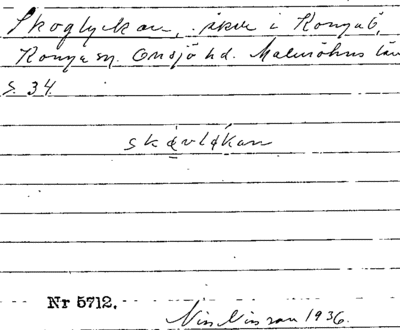 Skoglyckan, åker i Konga 6,
Konga sn. Onsjö hd. Malmöhus län
S. 34
skǫ́vlǫ́kan
Nr 5712.
Nils Nilsson 1936.